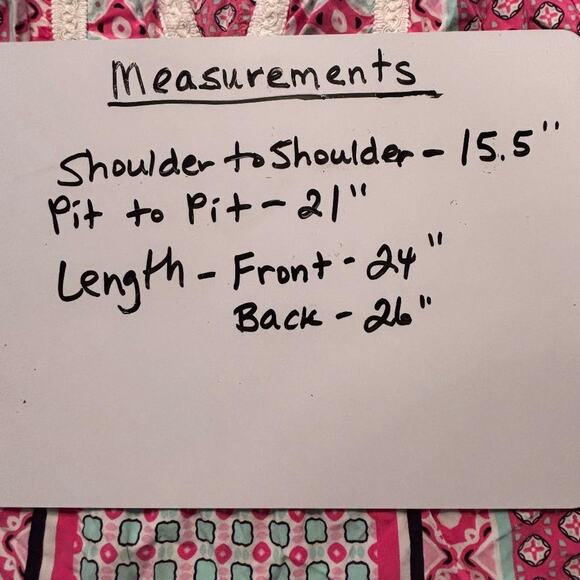 Measurements
Shoulder to Shoulder - 15.5"
Pit to Pit - 21"
Length - Front - 24"
Back - 26"